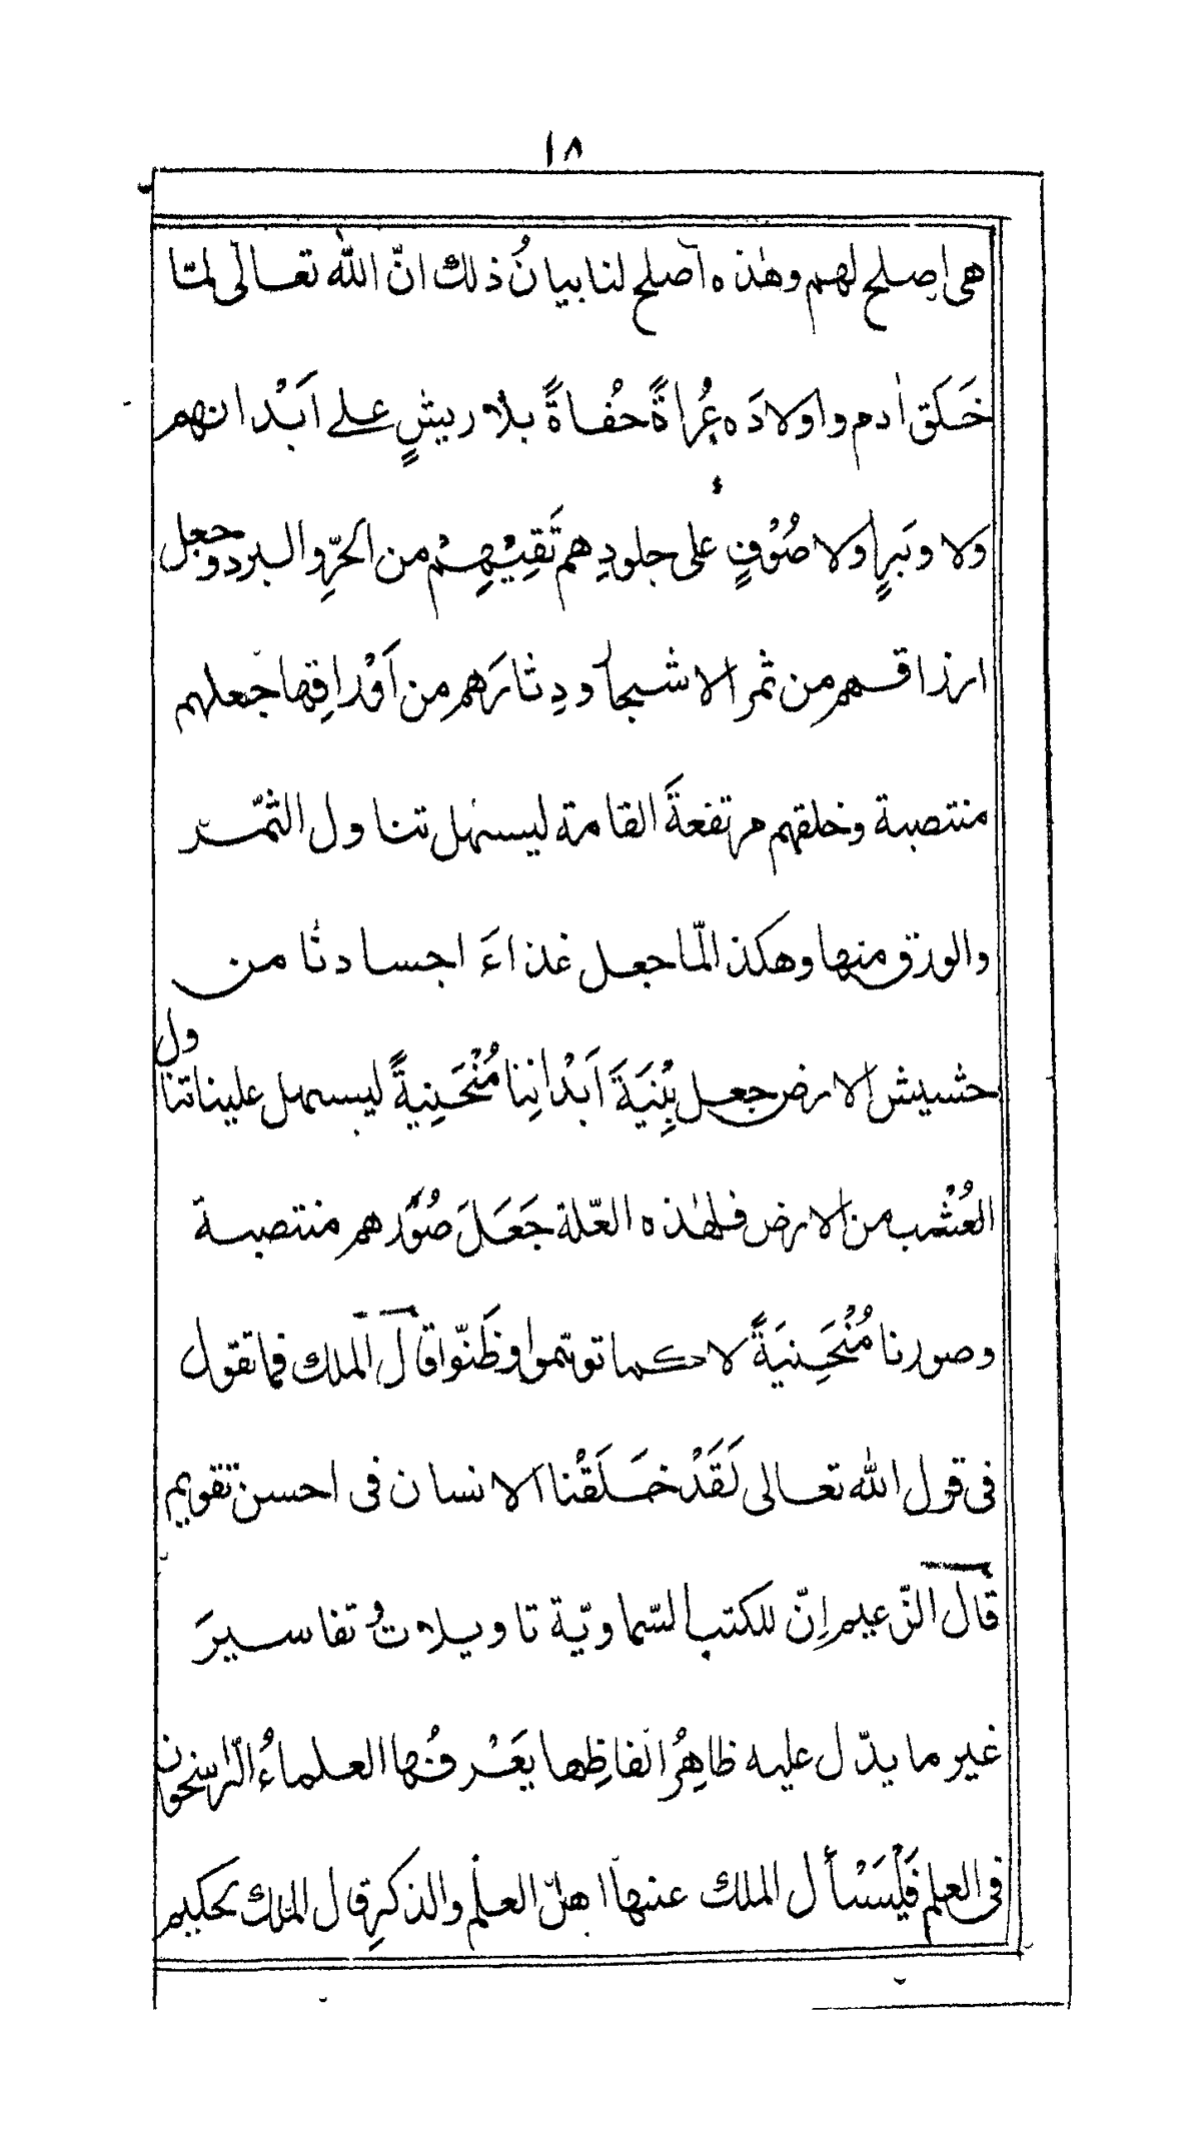 ١٨
هى اصلح لهم وهٰذه اَصلح لنا بيانُ ذلك انّ الله تعالٰى لمّا
خَلَق اٰدم واولادَه عُراةً حُفاةً بلا ريشٍ على اَبْدانهم
ولا وبَرٍ ولا صُوْفٍ على جلودِهم تَقِيْهِمْ من الحرِّ والبرد وجعل
ارزاقهم من ثمر الاشجار ودِثارَهم مِن اَوْراقِها جعلهم
منتصبة وخلقهم مرتفعةَ القامة ليسهل تناول الثمّر
والورق منها وهكذا لمّا جعل غذاءَ اجسادنا من
حشيش الارض جعل بِنْيَةَ اَبْدانِنا مُنْحَنِيةً ليسهل علينا تناول
العُشْب من الارض فلهٰذه العلّة جَعَلَ صُوَرهم منتصبة
وصورنا مُنْحَنِيَةً لا كما توهّموا وظَنّوا قال الملك فما تقول
فى قول الله تعالى لَقَدْ خَلَقْنا الانسان فى احسن تقويم
قال الزّعيم اِنّ للكتب السّماويّة تاويلات وتفاسيرَ
غير ما يدّل عليه ظاهِرُ الفاظِها يَعْرفُها العلماءُ الرّاسخون
فى العلم فَلْيَسْأل الملك عنها اهلَ العلْم والذكرِ قال الملك لحكيم